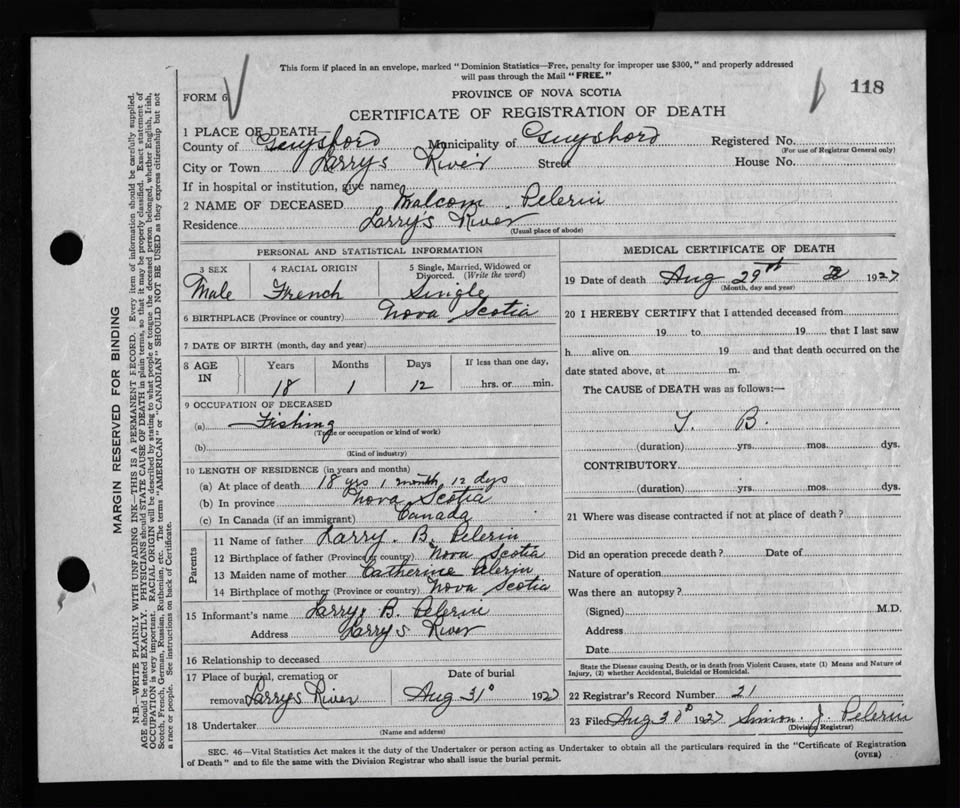 This form if placed in an envelope, marked "Dominion Statistics—Free, penalty for improper use $300," and properly addressed
will pass through the Mail "FREE."
118
FORM 6
PROVINCE OF NOVA SCOTIA
CERTIFICATE OF REGISTRATION OF DEATH
1 PLACE OF DEATH—
County of Guysboro Municipality of Guysboro Registered No.
(For use of Registrar General only)
City or Town Larrys River Street House No.
If in hospital or institution, give name
2 NAME OF DECEASED Malcom Pelerin
Residence Larry's River
(Usual place of abode)
PERSONAL AND STATISTICAL INFORMATION
3 SEX 4 RACIAL ORIGIN 5 Single, Married, Widowed or Divorced. (Write the word)
Male French Single
6 BIRTHPLACE (Province or country) Nova Scotia
7 DATE OF BIRTH (month, day and year)
8 AGE IN Years Months Days If less than one day,
18 1 12 hrs. or min.
9 OCCUPATION OF DECEASED
(a) Fishing
(Trade or occupation or kind of work)
(b)
(Kind of industry)
10 LENGTH OF RESIDENCE (in years and months)
(a) At place of death 18 yrs 1 month, 12 dys
(b) In province Nova Scotia
(c) In Canada (if an immigrant) Canada
Parents
11 Name of father Larry. B. Pelerin
12 Birthplace of father (Province or country) Nova Scotia
13 Maiden name of mother Catherine Pelerin
14 Birthplace of mother (Province or country) Nova Scotia
15 Informant's name Larry B. Pelerin
Address Larrys River
16 Relationship to deceased
17 Place of burial, cremation or removal Larrys River
Date of burial Aug 31° 1927
18 Undertaker
(Name and address)
MEDICAL CERTIFICATE OF DEATH
19 Date of death Aug 29th 1927
(Month, day and year)
20 I HEREBY CERTIFY that I attended deceased from
19 to 19 that I last saw
h alive on 19 and that death occurred on the
date stated above, at m.
The CAUSE of DEATH was as follows:—
T. B.
(duration) yrs. mos. dys.
CONTRIBUTORY
(duration) yrs. mos. dys.
21 Where was disease contracted if not at place of death?
Did an operation precede death? Date of
Nature of operation
Was there an autopsy?
(Signed) M.D.
Address
Date
State the Disease causing Death, or in death from Violent Causes, state (1) Means and Nature of
Injury, (2) whether Accidental, Suicidal or Homicidal.
22 Registrar's Record Number 21
23 Filed Aug 30th 1927 Simon. J. Pelerin
(Division Registrar)
SEC. 46—Vital Statistics Act makes it the duty of the Undertaker or person acting as Undertaker to obtain all the particulars required in the "Certificate of Registration
of Death" and to file the same with the Division Registrar who shall issue the burial permit.
(OVER)
MARGIN RESERVED FOR BINDING
N.B.—WRITE PLAINLY WITH UNFADING INK—THIS IS A PERMANENT RECORD. Every item of information should be carefully supplied.
AGE should be stated EXACTLY. PHYSICIANS should STATE CAUSE OF DEATH in plain terms, so that it may be properly classified. Exact statement of
OCCUPATION is very important. RACIAL ORIGIN will be described by stating to what people or tongue the deceased person belonged, whether English, Irish,
Scotch, French, German, Russian, Ruthenian, etc. The terms "AMERICAN" or "CANADIAN" SHOULD NOT BE USED as they express citizenship but not
a race or people. See instructions on back of Certificate.